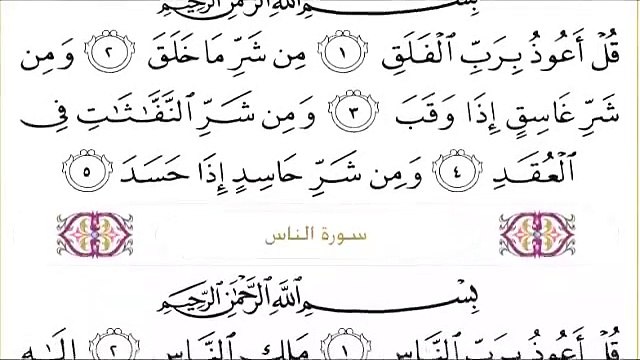 بِسْمِ اللَّهِ الرَّحْمَٰنِ الرَّحِيمِ
قُلْ أَعُوذُ بِرَبِّ ٱلْفَلَقِ ١ مِن شَرِّ مَا خَلَقَ ٢ وَمِن
شَرِّ غَاسِقٍ إِذَا وَقَبَ ٣ وَمِن شَرِّ ٱلنَّفَّـٰثَـٰتِ فِى
ٱلْعُقَدِ ٤ وَمِن شَرِّ حَاسِدٍ إِذَا حَسَدَ ٥
سورة الناس
بِسْمِ اللَّهِ الرَّحْمَٰنِ الرَّحِيمِ
قُلْ أَعُوذُ بِرَبِّ ٱلنَّاسِ ١ مَلِكِ ٱلنَّاسِ ٢ إِلَـٰهِ